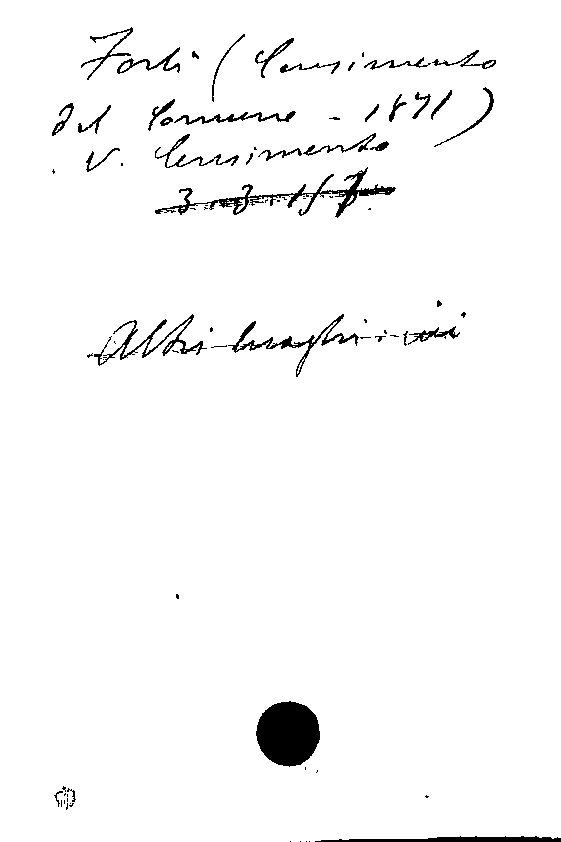 Forlì (Censimento
del Comune - 1871)
V. Censimento
3. 3. 157
Altri luoghi: ivi